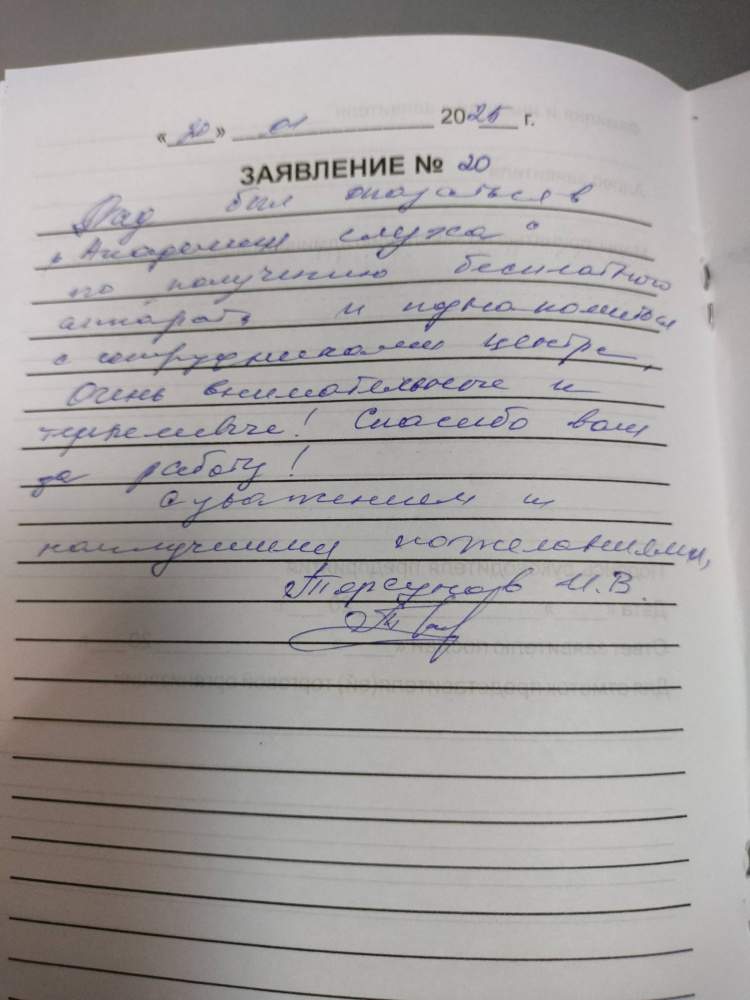 «20» 01 2025 г.
ЗАЯВЛЕНИЕ № 20
Рад был оказаться в
"Академии слуха"
по получению бесплатного
аппарата и познакомиться
с сотрудниками центра.
Очень внимательные и
терпеливые! Спасибо вам
за работу!
С уважением и
наилучшими пожеланиями,
Торсунов И.В.